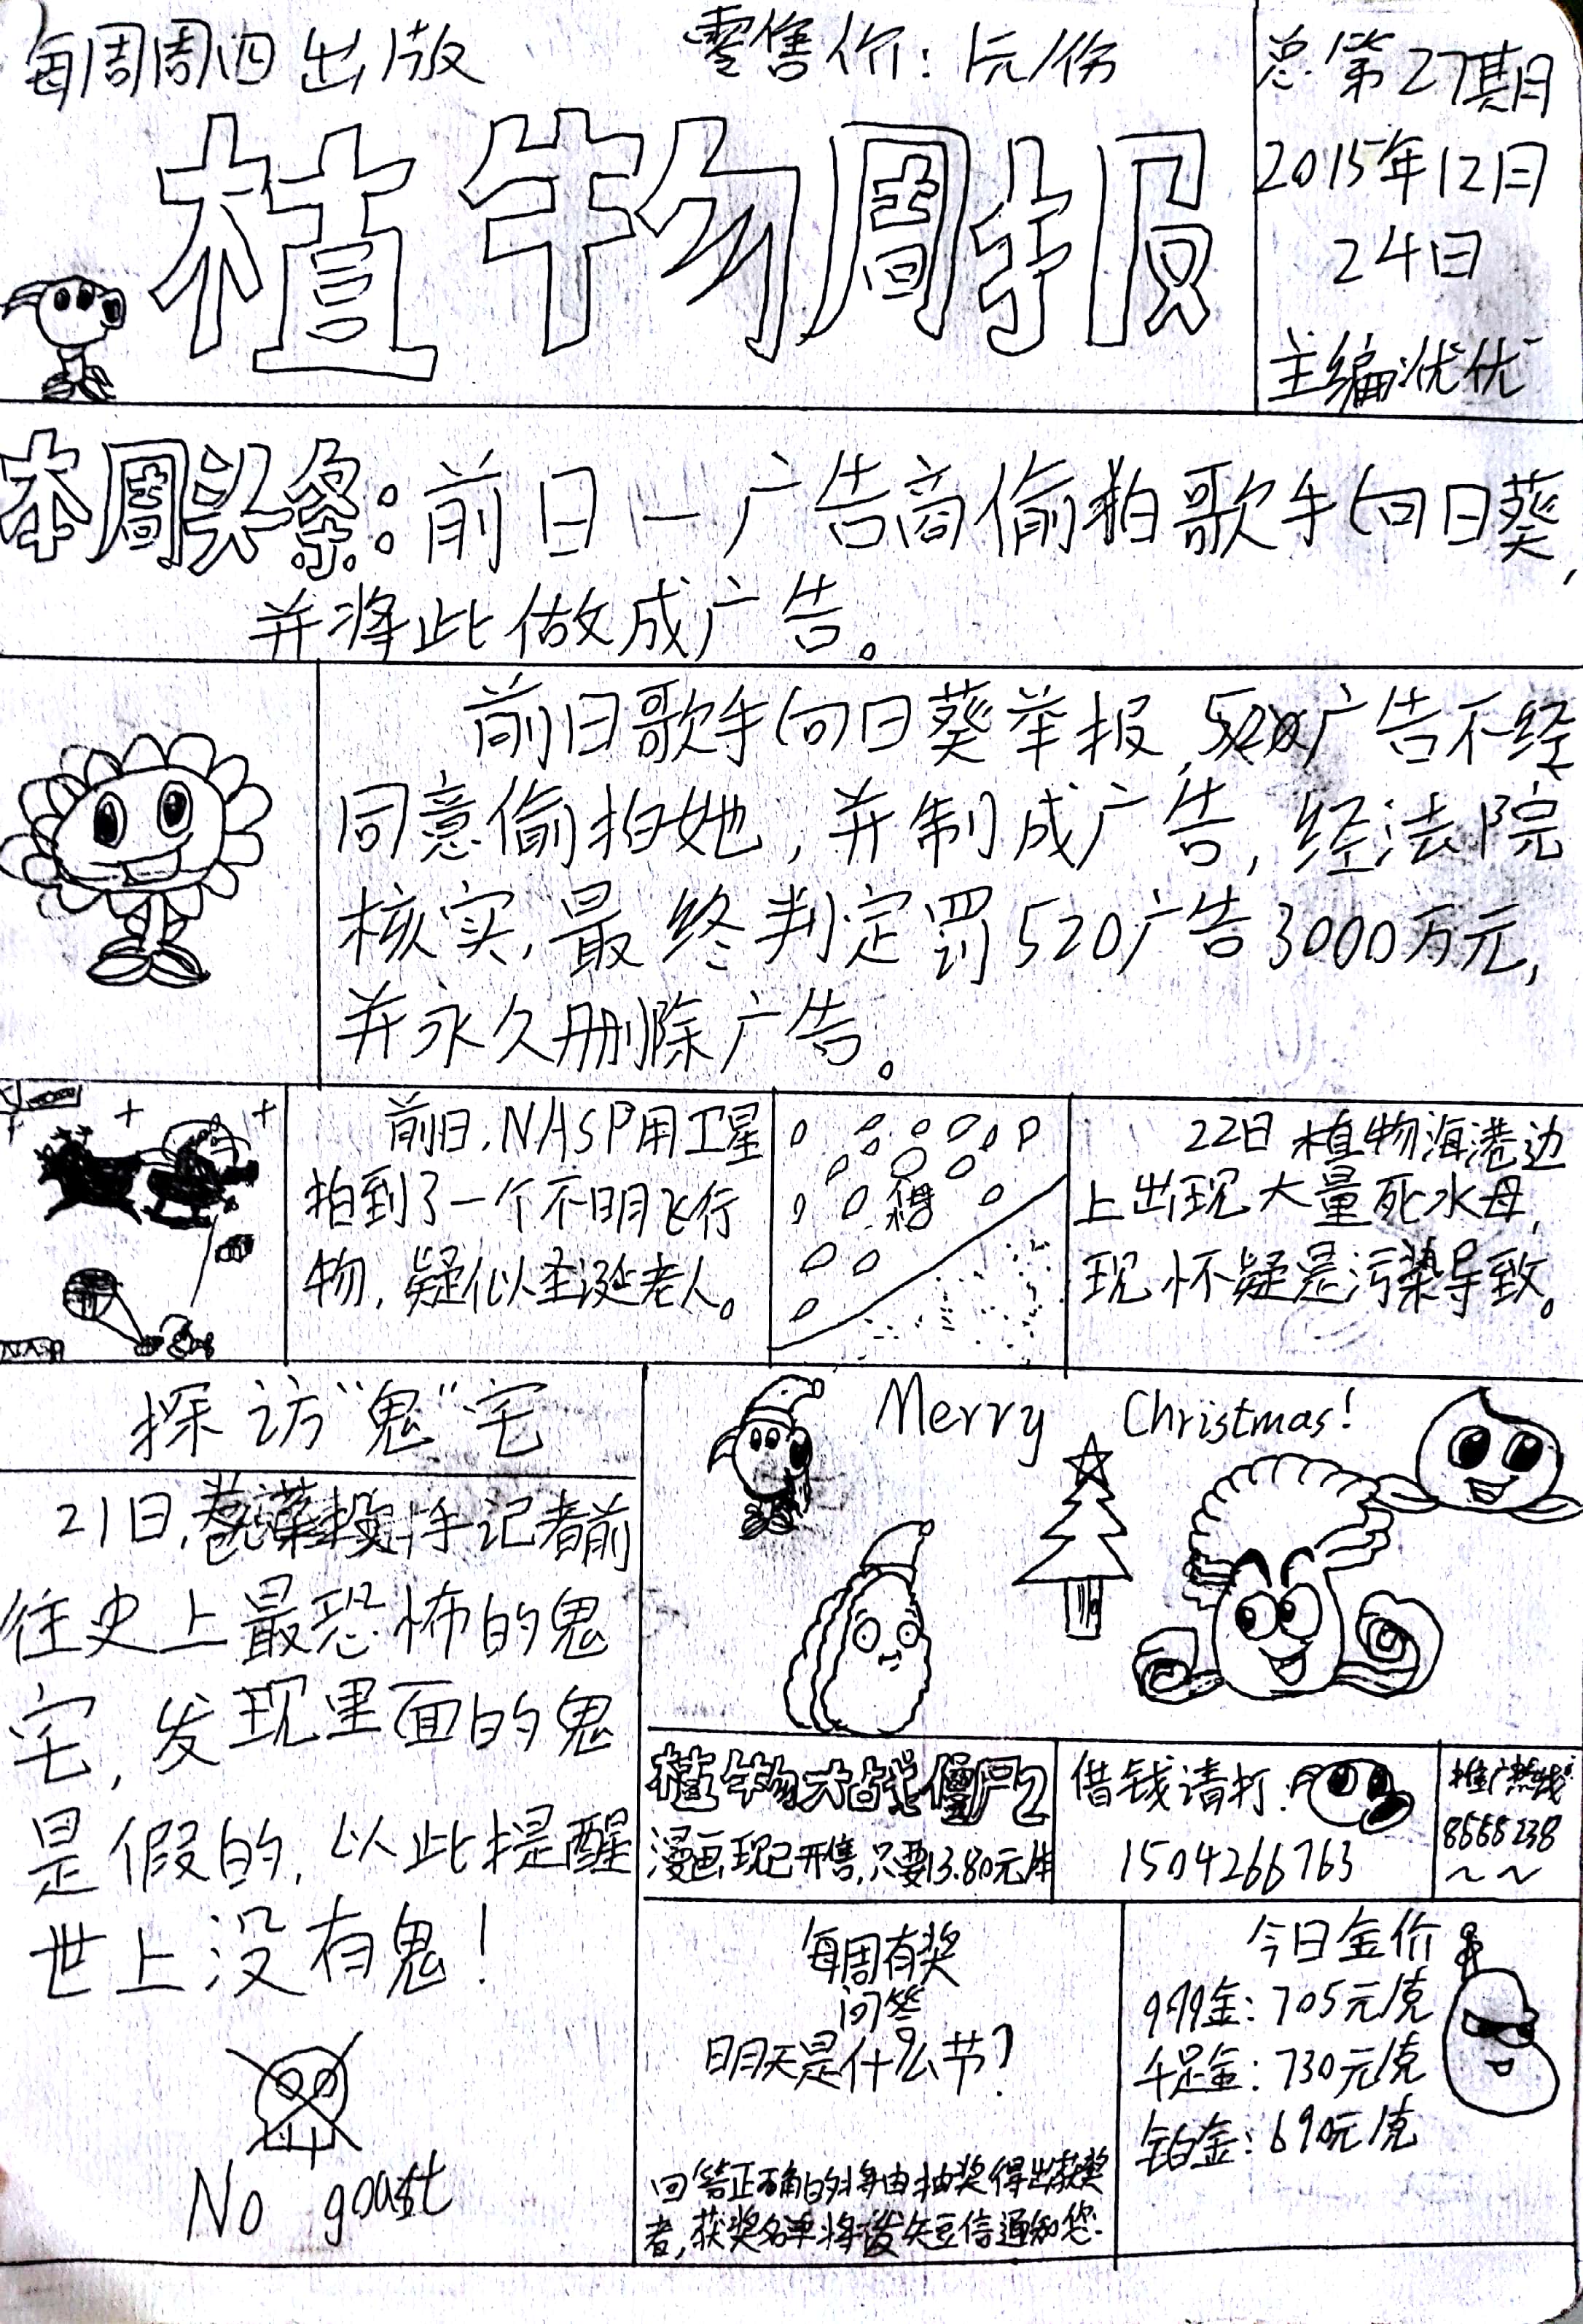 每周周四出版
零售价：1元/份
总第27期
2015年12月
24日
主编：优优
植物周报
本周头条：前日一广告商偷拍歌手向日葵，
并将此做成广告。
前日歌手向日葵举报，520广告不经
同意偷拍她，并制成广告，经法院
核实，最终判定罚520广告3000万元，
并永久删除广告。
NASA
前日，NASP用卫星
拍到了一个不明飞行
物，疑似圣诞老人。
22日植物海港边
上出现大量死水母，
现怀疑是污染导致。
探访“鬼”宅
21日，卷菜投手记者前
往史上最恐怖的鬼
宅，发现里面的鬼
是假的，以此提醒
世上没有鬼！
No goast
Merry Christmas!
植物大战僵尸2
漫画现已开售，只要13.80元/本
借钱请打：
1504266763
推广热线
8668238
～～
每周有奖
问答
明天是什么节？
回答正确的将由抽奖得出获奖
者，获奖名单将发短信通知您.
今日金价
999金：705元/克
千足金：730元/克
铂金：690元/克